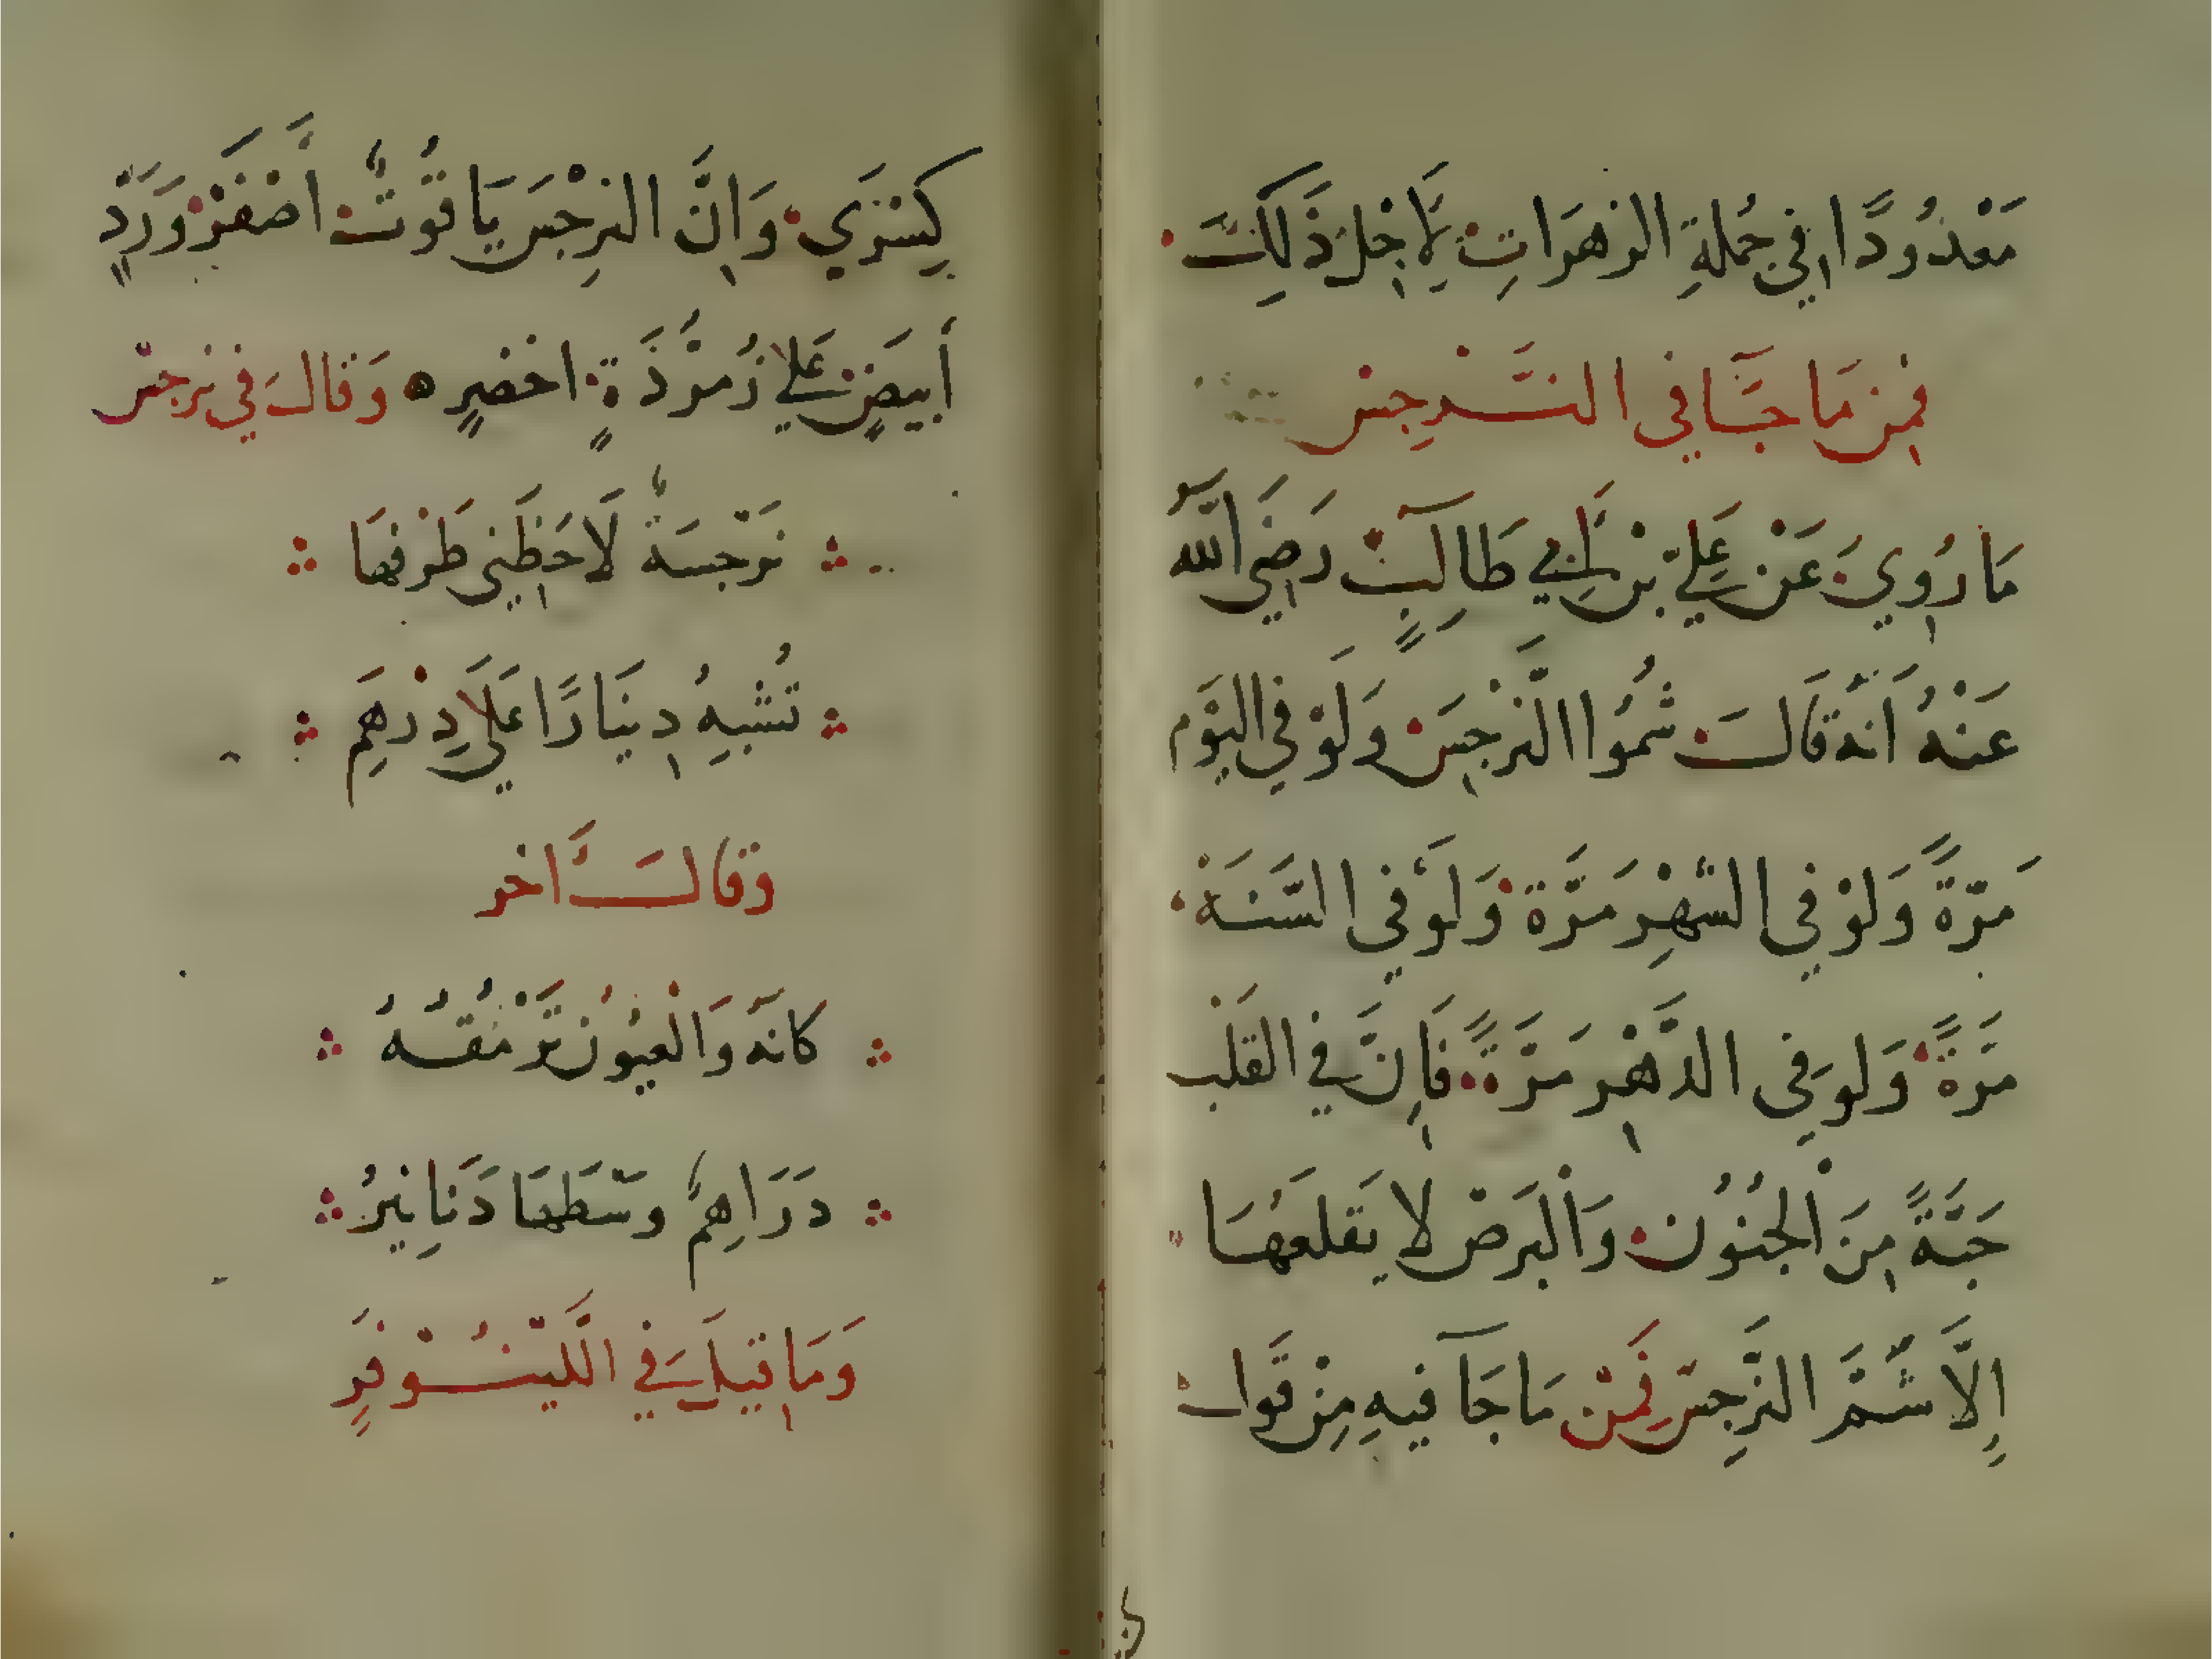 مَعْدُودًا فِي جُملَةِ الزهَوَاتِ لِاَجِلْ ذَلِكَ
فمِن مَا جَا في النَّرجِس
مَا رُوِيَ عَنْ عَلِيّ بْن اَبِي طَالِبٍ رَضِيَ اللّه
عَنْهُ اَنهُ قَالَ شمُوا النَرْجِسَ وَلَوْ فِي اليَوَم
مَرّةً وَلَوْ فِي الشهْرِ مَرَّة وَلَوْ في السَّنَة
مَرَةً وَلو فِى الدَّهْر مَرَّةً فَاِنَّ فِي القَلْب
حَبَّةً مِنَ الْجُنُوُن وَالْبَرَصْ لا يَقلَعُهَا
اِلَّا شَمَّ النَّرجِسِ فَمِنْ مَا جَآ فِيهِ مِنْ قَوَل
كِسْرَي وَاِنَّ النرِجْسَ يَاقُوتٌ اَصْفَرْ وَرَدٍّ
أَبيَضٍ عَلَي زُمرُذَةٍ اخضرٍ ه وَقالَ في نرجس
نَرْجسَةٌ لَاحَظَنِي طَرْفهَا
تُشْبِهُ دِينَارًا عَلَي دِرْهَمِ
وقالَ اَخر
كانهُ وَالْعيُونُ تَرْمُقُهُ
دَرَاهِمٌ وسّطَهَا دَنانِيرُ
وَمَا قِيلَ فِي اللَّيْنُوْفَرِ